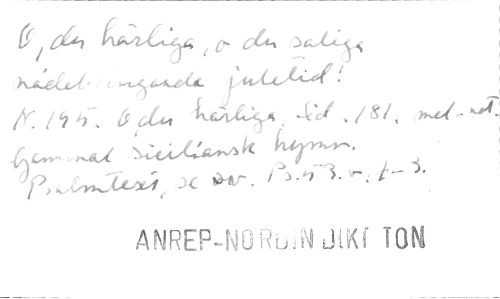 O, du härliga, o du saliga
nådebringande juletid!
N. 195. O, du härliga. Sid. 181. mel.-not.
Gammal siciliansk hymn.
Psalmtext, se av. Ps. 53. v. 1-3.
ANREP-NORDIN DIKT TON